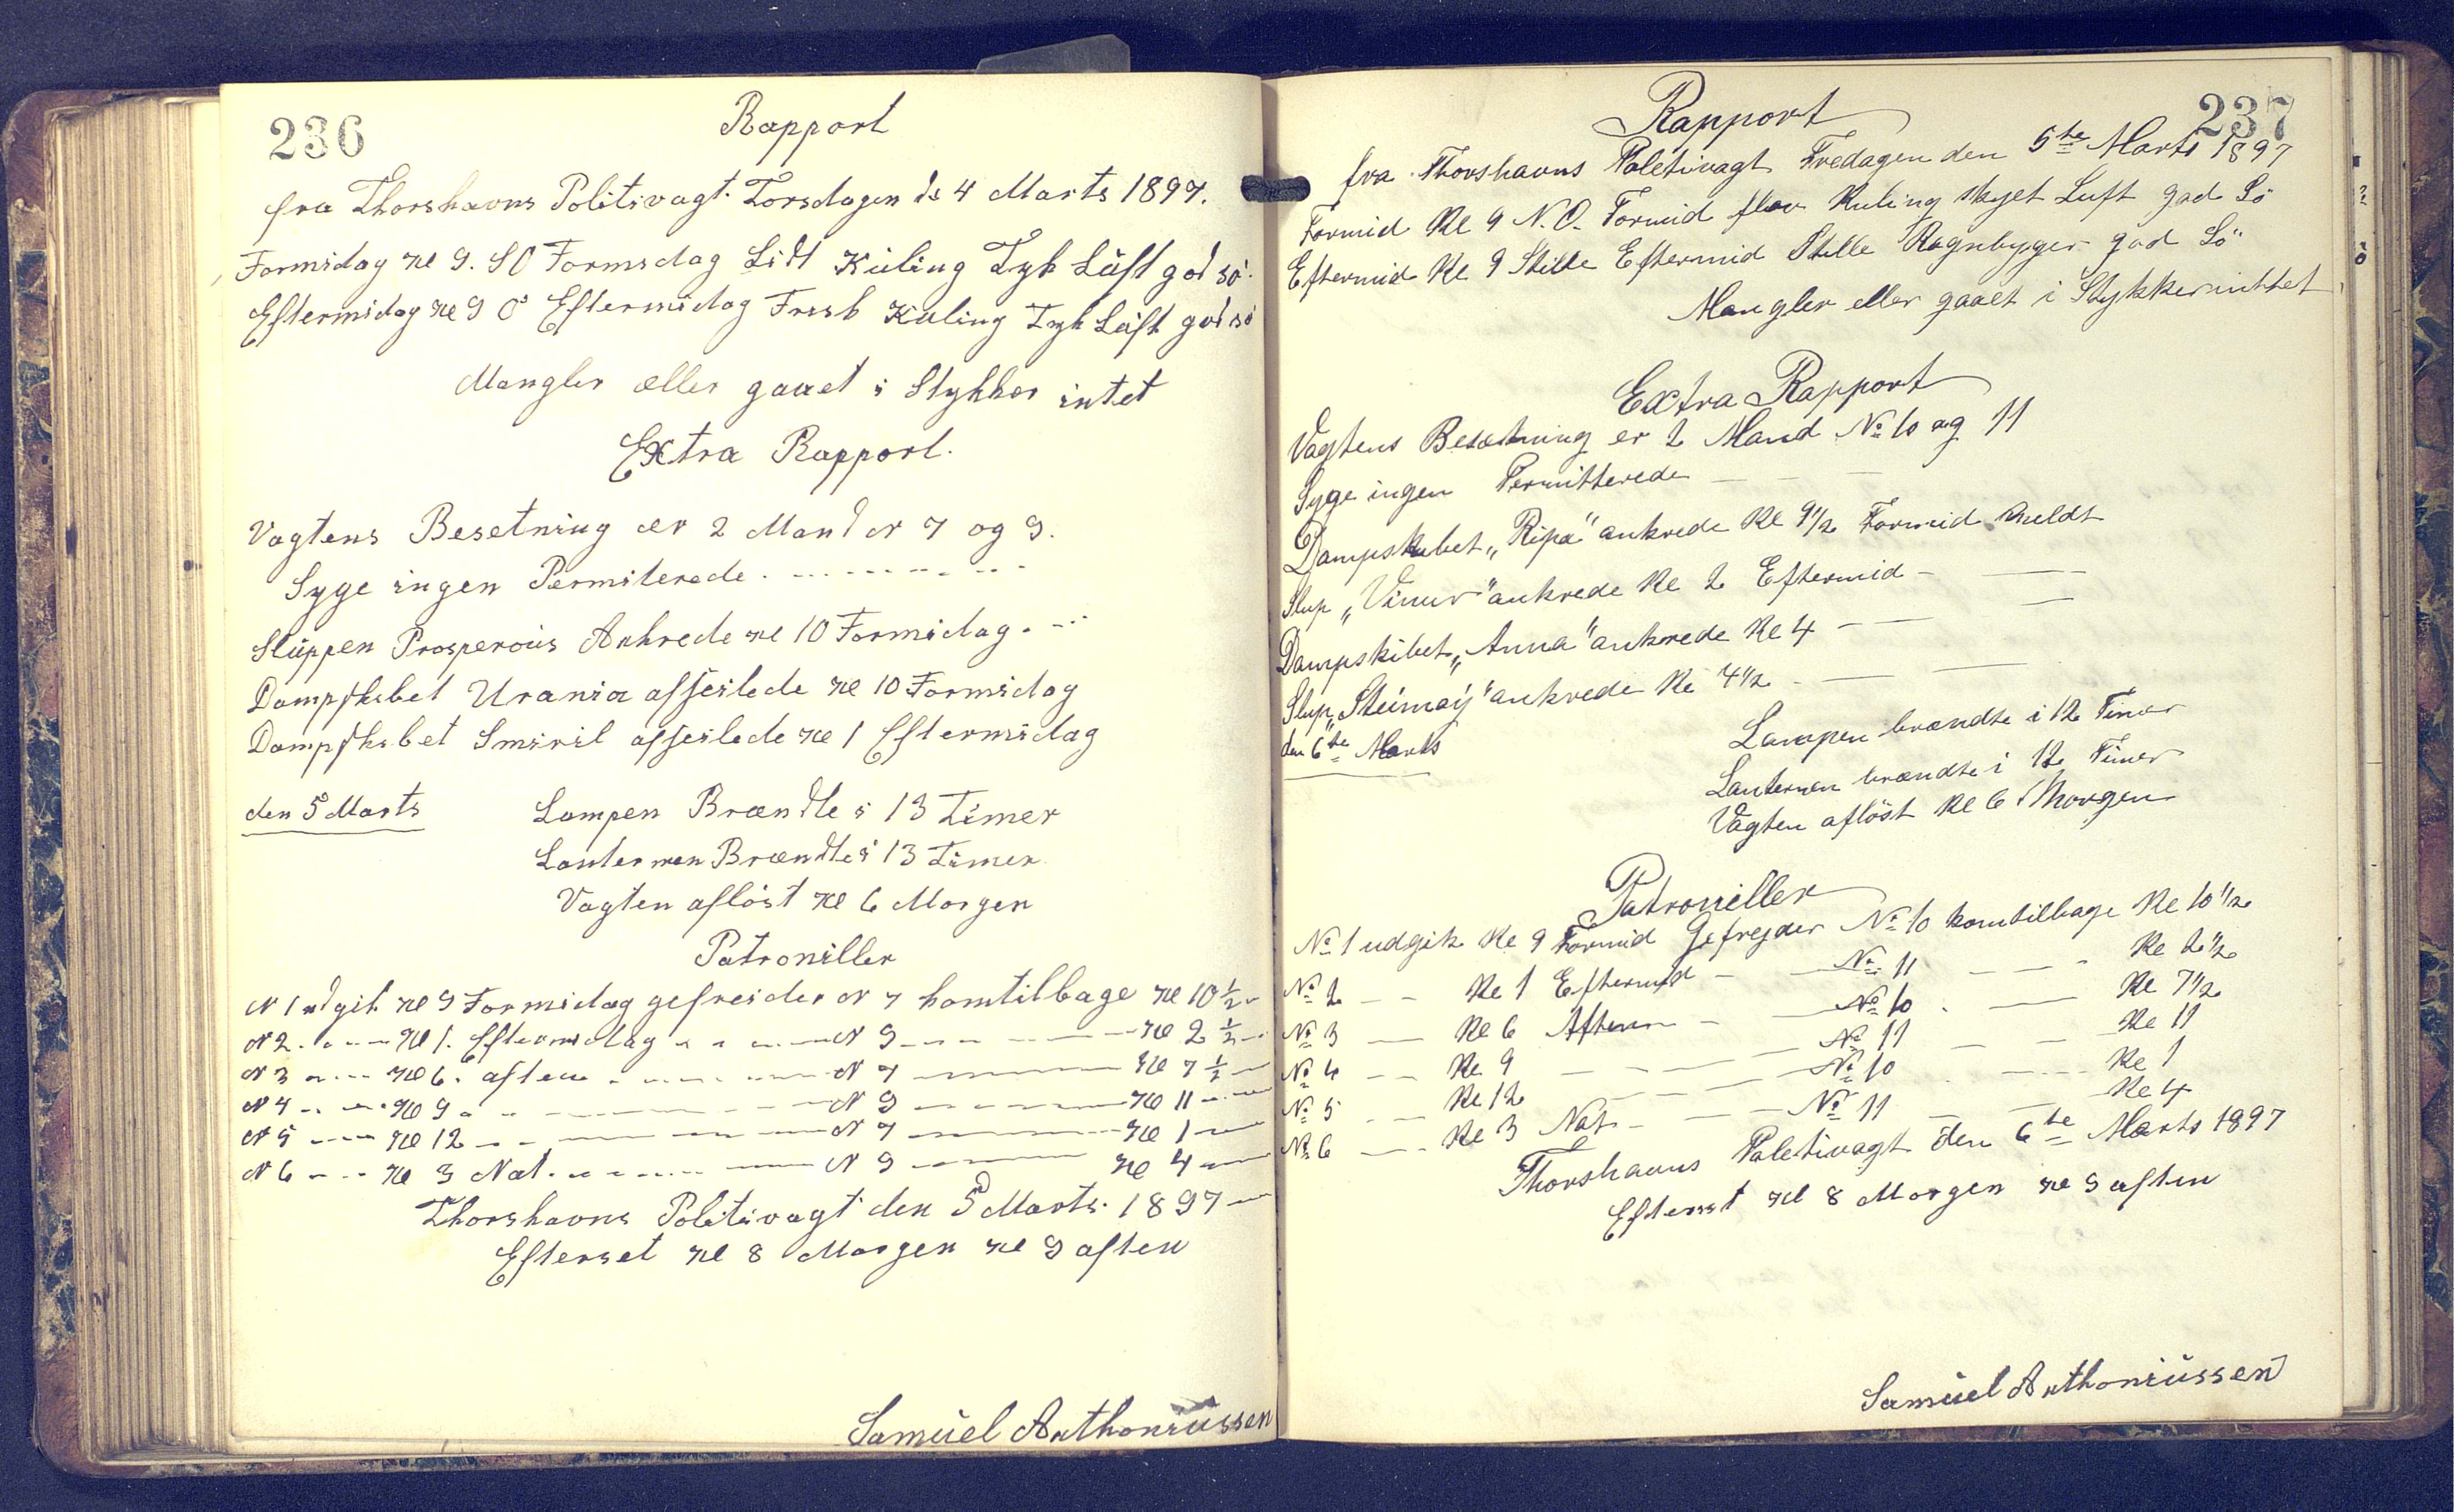 236
Rapport
fra Thorshavns Politivagt Torsdagen d: 4 Marts 1897.
Formidag Kl 9. SO Formidag Lidt Kuling Tyk Luft god sö.
Eftermidag Kl 9 O Eftermidag Frisk Kuling Tyk Luft god sö
Mangler eller gaaet i Stykker intet
Extra Rapport.
Vagtens Besetning er 2 Mand N 7 og 9.
Syge ingen Permiterede.
Sluppen Prosperous Ankrede Kl 10 Formidag.
Dampskibet Urania afseilede Kl 10 Formidag
Dampskibet Smiril afseilede Kl 1 Eftermidag
den 5 Marts
Lampen Brændte i 13 Timer
Lanternen Brændte i 13 Timer
Vagten aflöst Kl 6 Morgen
Patroniller
N 1 udgik Kl 9 Formidag gefreider N 7 komtilbage Kl 10 ½
N 2 Kl 1. Eftermidag N 9 Kl 2 ½
N 3 Kl 6. aften N 7 Kl 7 ½
N 4 Kl 9 N 9 Kl 11
N 5 Kl 12 N 7 Kl 1
N 6 Kl 3 Nat. N 9 Kl 4
Thorshavns Politivagt den 5 Marts. 1897
Efterset Kl 8 Morgen Kl 9 aften
Samuel Anthoniussen
237
Rapport
fra Thorshavns Poletivagt Fredagen den 5te Marts 1897
Formid Kl 9 N.O. Formid flov Kuling skyet Luft god Sö
Eftermid Kl 9 Stille Eftermid Stille Regnbyger god Sö
Mangler eller gaaet i Stykker inttet
Extra Rapport
Vagtens Besætning er 2 Mand No 10 og 11
Syge ingen Permitterede
Dampskibet „Ripa" ankrede Kl 9 1/2 Formid meldt
Slup „Vinur" ankrede Kl 2 Eftermid
Dampskibet „Anna" ankrede Kl 4
Slup „Steimaÿ" ankrede Kl 4 1/2
den 6te Marts
Lampen brændte i 12 Timer
Lanternen brændte i 12 Timer
Vagten aflöst Kl 6 Morgen
Patroniller
No 1 udgik Kl 9 Formid Gefrejder No 10 komtilbage Kl 10 1/2
No 2 Kl 1 Eftermid No 11 Kl 2 1/2
No 3 Kl 6 Aften No 10 Kl 7 1/2
No 4 Kl 9 No 11 Kl 11
No 5 Kl 12 No 10 Kl 1
No 6 Kl 3 Nat No 11 Kl 4
Thorshavns Poletivagt den 6te Marts 1897
Efterset Kl 8 Morgen Kl 9 aften
Samuel Anthoniussen